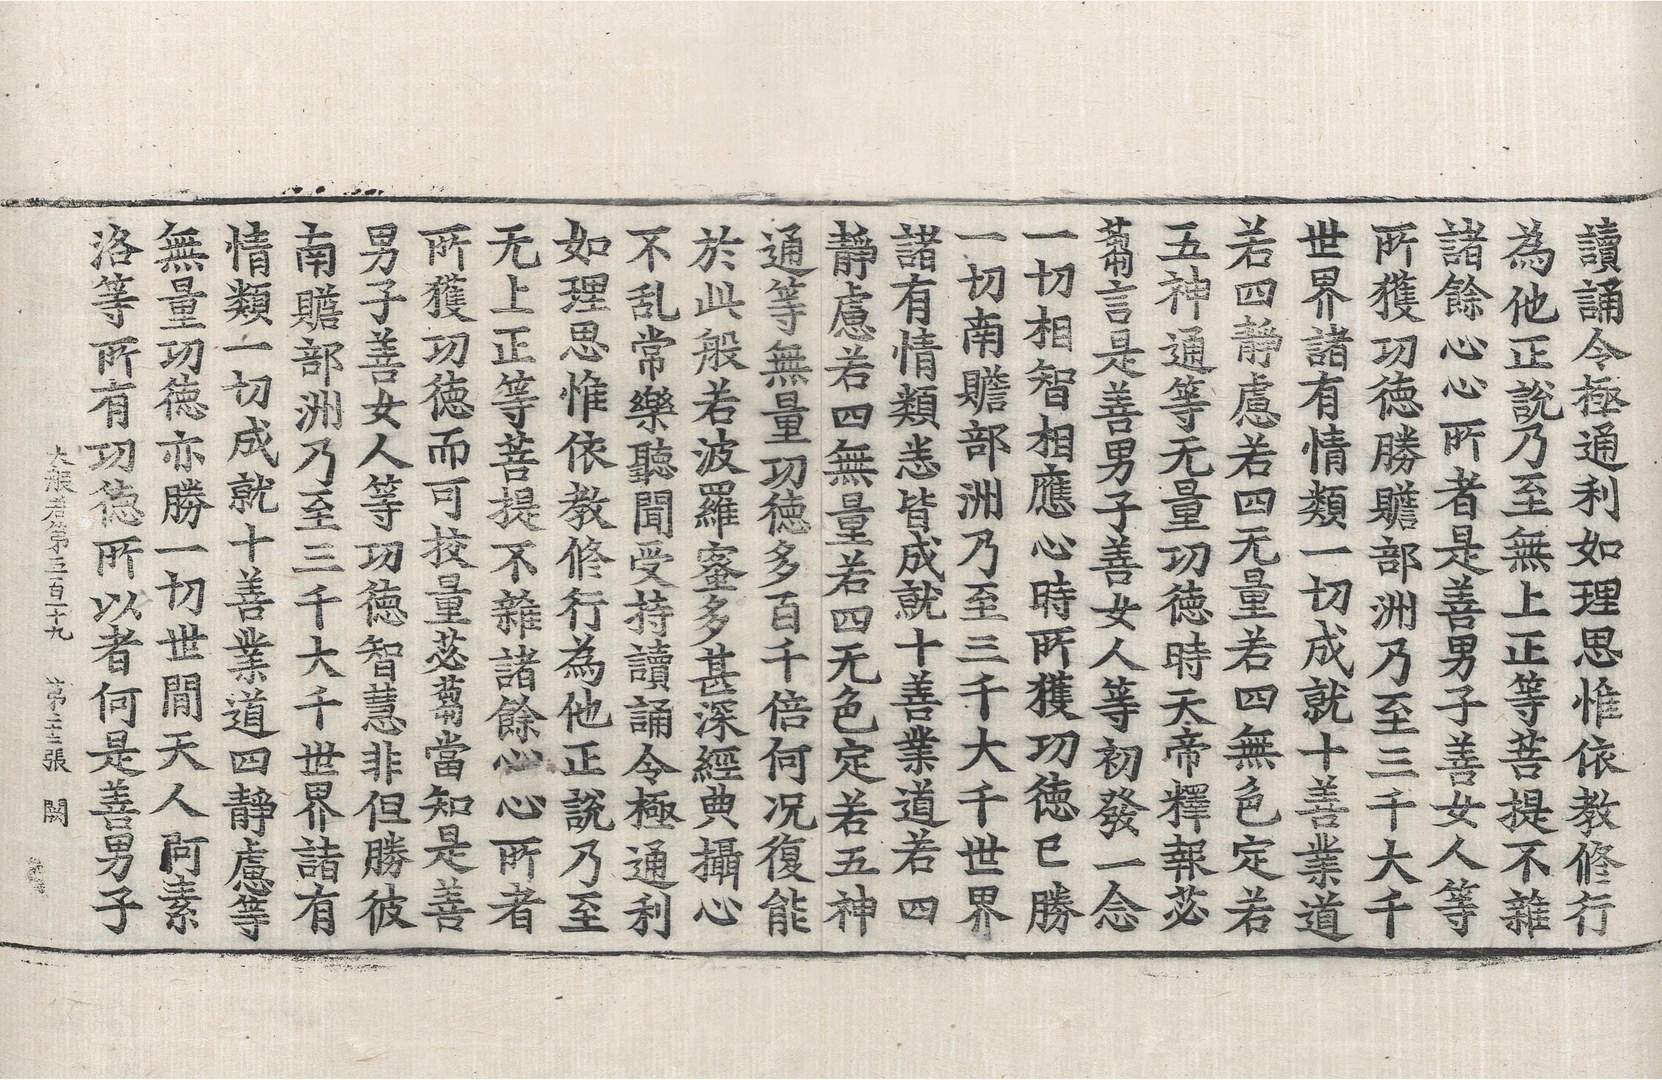 讀誦令極通利如理思惟依教修行
為他正說乃至無上正等菩提不雜
諸餘心心所者是善男子善女人等
所獲功德勝贍部洲乃至三千大千
世界諸有情類一切成就十善業道
若四靜慮若四无量若四無色定若
五神通等无量功德時天帝釋報苾
蒭言是善男子善女人等初發一念
一切相智相應心時所獲功德已勝
一切南贍部洲乃至三千大千世界
諸有情類悉皆成就十善業道若四
靜慮若四無量若四无色定若五神
通等無量功德多百千倍何况復能
於此般若波羅蜜多甚深經典攝心
不乱常樂聽聞受持讀誦令極通利
如理思惟依教修行為他正說乃至
无上正等菩提不雜諸餘心心所者
所獲功德而可挍量苾蒭當知是善
男子善女人等功德智慧非但勝彼
南贍部洲乃至三千大千世界諸有
情類一切成就十善業道四靜慮等
無量功德亦勝一切世間天人阿素
洛等所有功德所以者何是善男子
大般若第三百一十九 第 張 闕